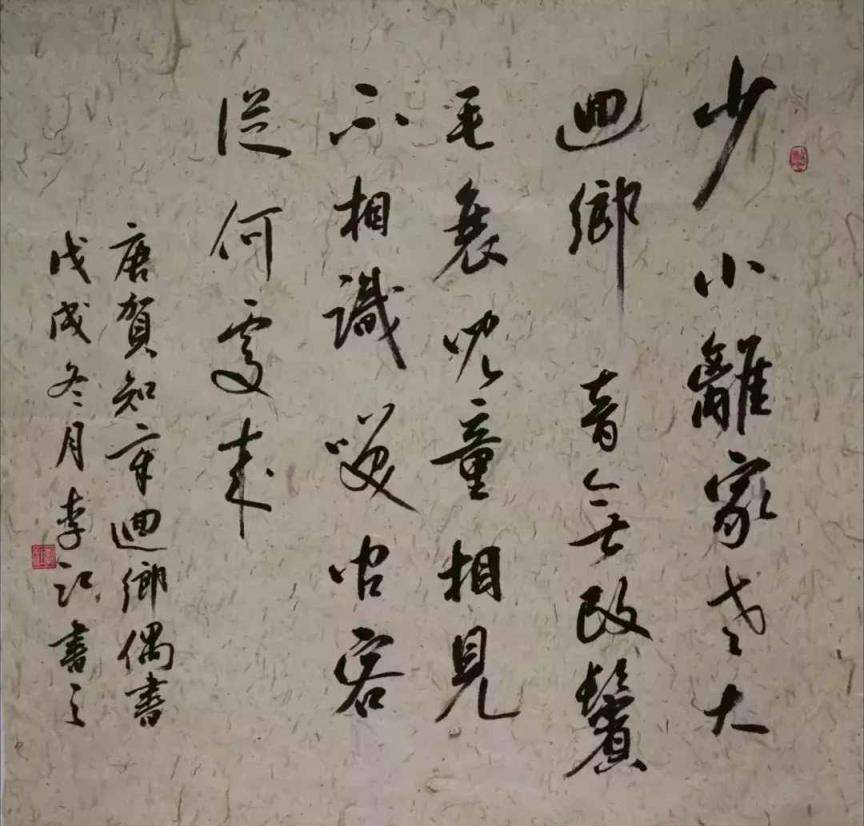 少小離家老大
迴鄉音無改鬢
毛衰兒童相見
不相識咲问客
從何處来
唐賀知章迴鄉偶書
戊戌冬月李江書之